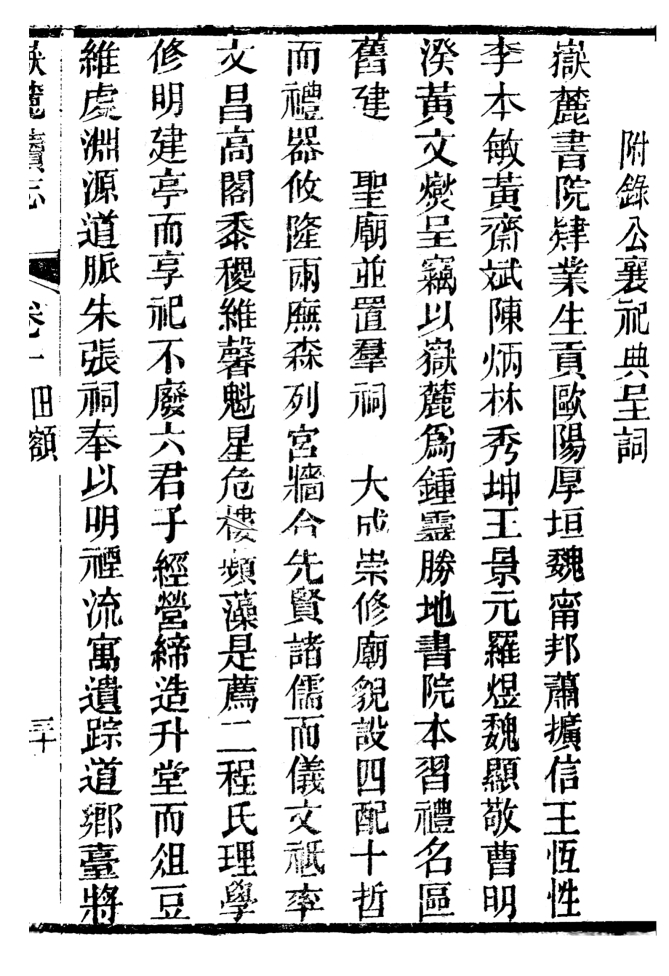 附錄公襄祀典呈詞
嶽麓書院肄業生貢歐陽厚垣魏甯邦蕭擴信王恆性
李本敏黃齋斌陳炳林秀坤王景元羅煜魏顯敬曹明
湀黃文爕呈竊以嶽麓爲鍾靈勝地書院本習禮名區
舊建　聖廟並置羣祠　大成崇修廟貌設四配十哲
而禮器攸隆兩廡森列宮牆合先賢諸儒而儀文祗率
文昌高閣黍稷維馨魁星危樓蘋藻是薦二程氏理學
修明建亭而享祀不廢六君子經營締造升堂而俎豆
維虔淵源道脈朱張祠奉以明禋流寓遺踪道鄉臺將
嶽麓續志　卷一　田額　三十